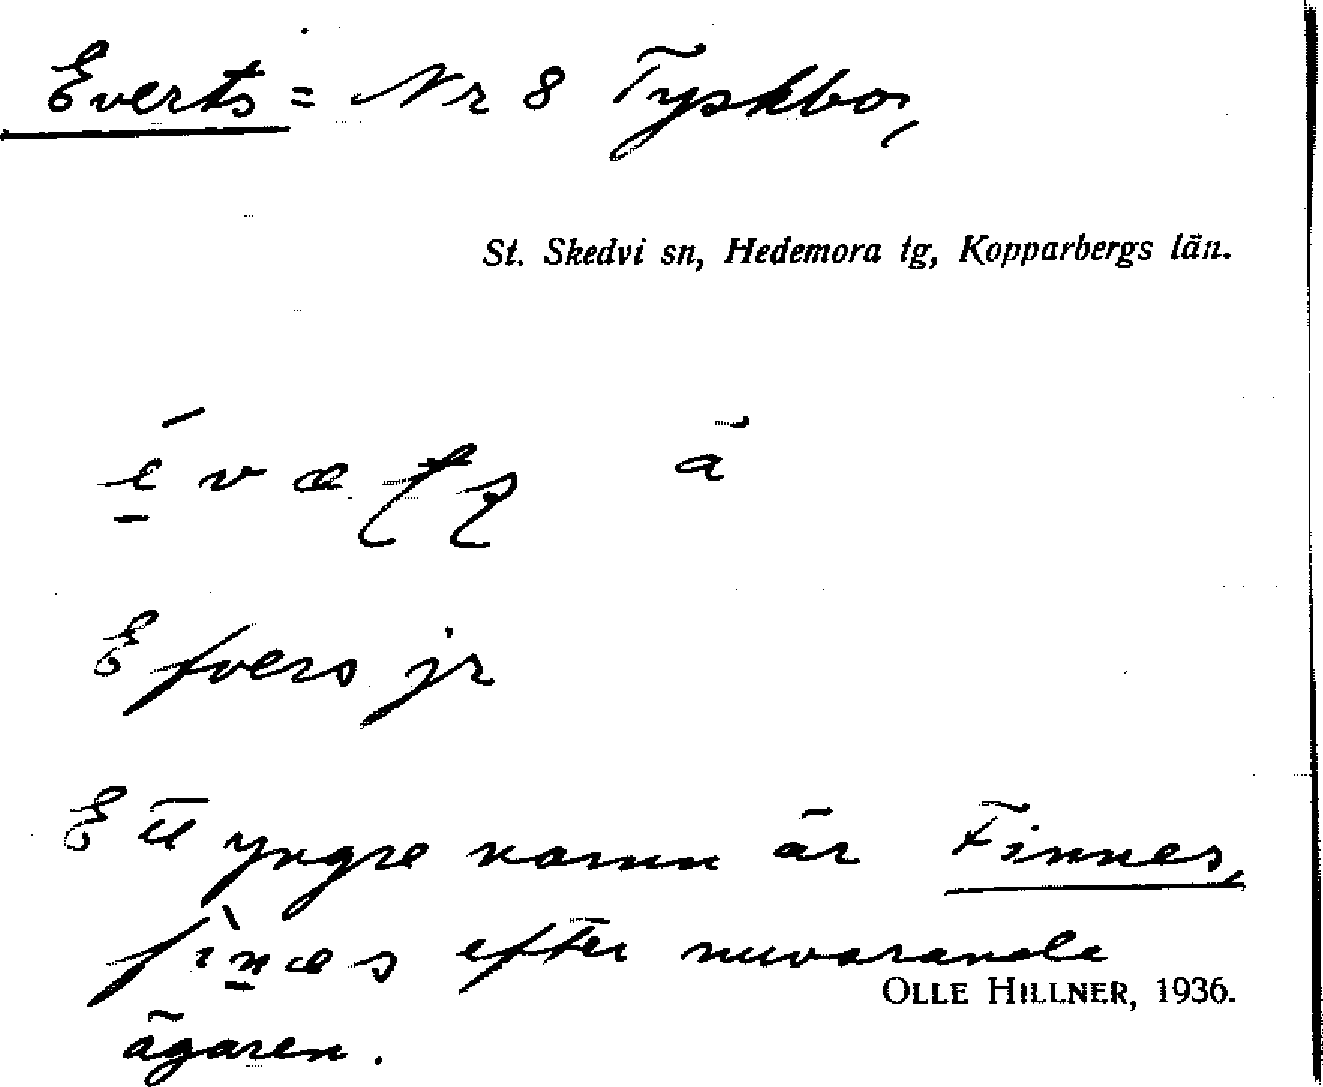 Everts = Nr 8 Tyskbo,
St. Skedvi sn, Hedemora tg, Kopparbergs län.
ä
Efvers jr
Ett yngre namn är Finnes,
fìnæs efter nuvarande
OLLE HILLNER, 1936.
ägaren.